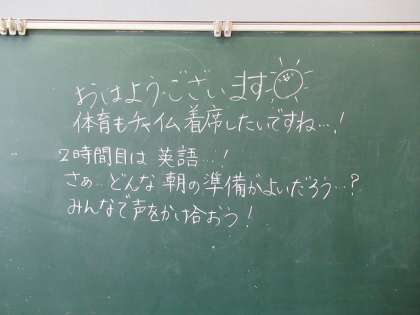 おはようございます
体育もチャイム着席したいですね…!
2時間目は 英語…!
さぁ…どんな朝の準備がよいだろう…?
みんなで声をかけ合おう!